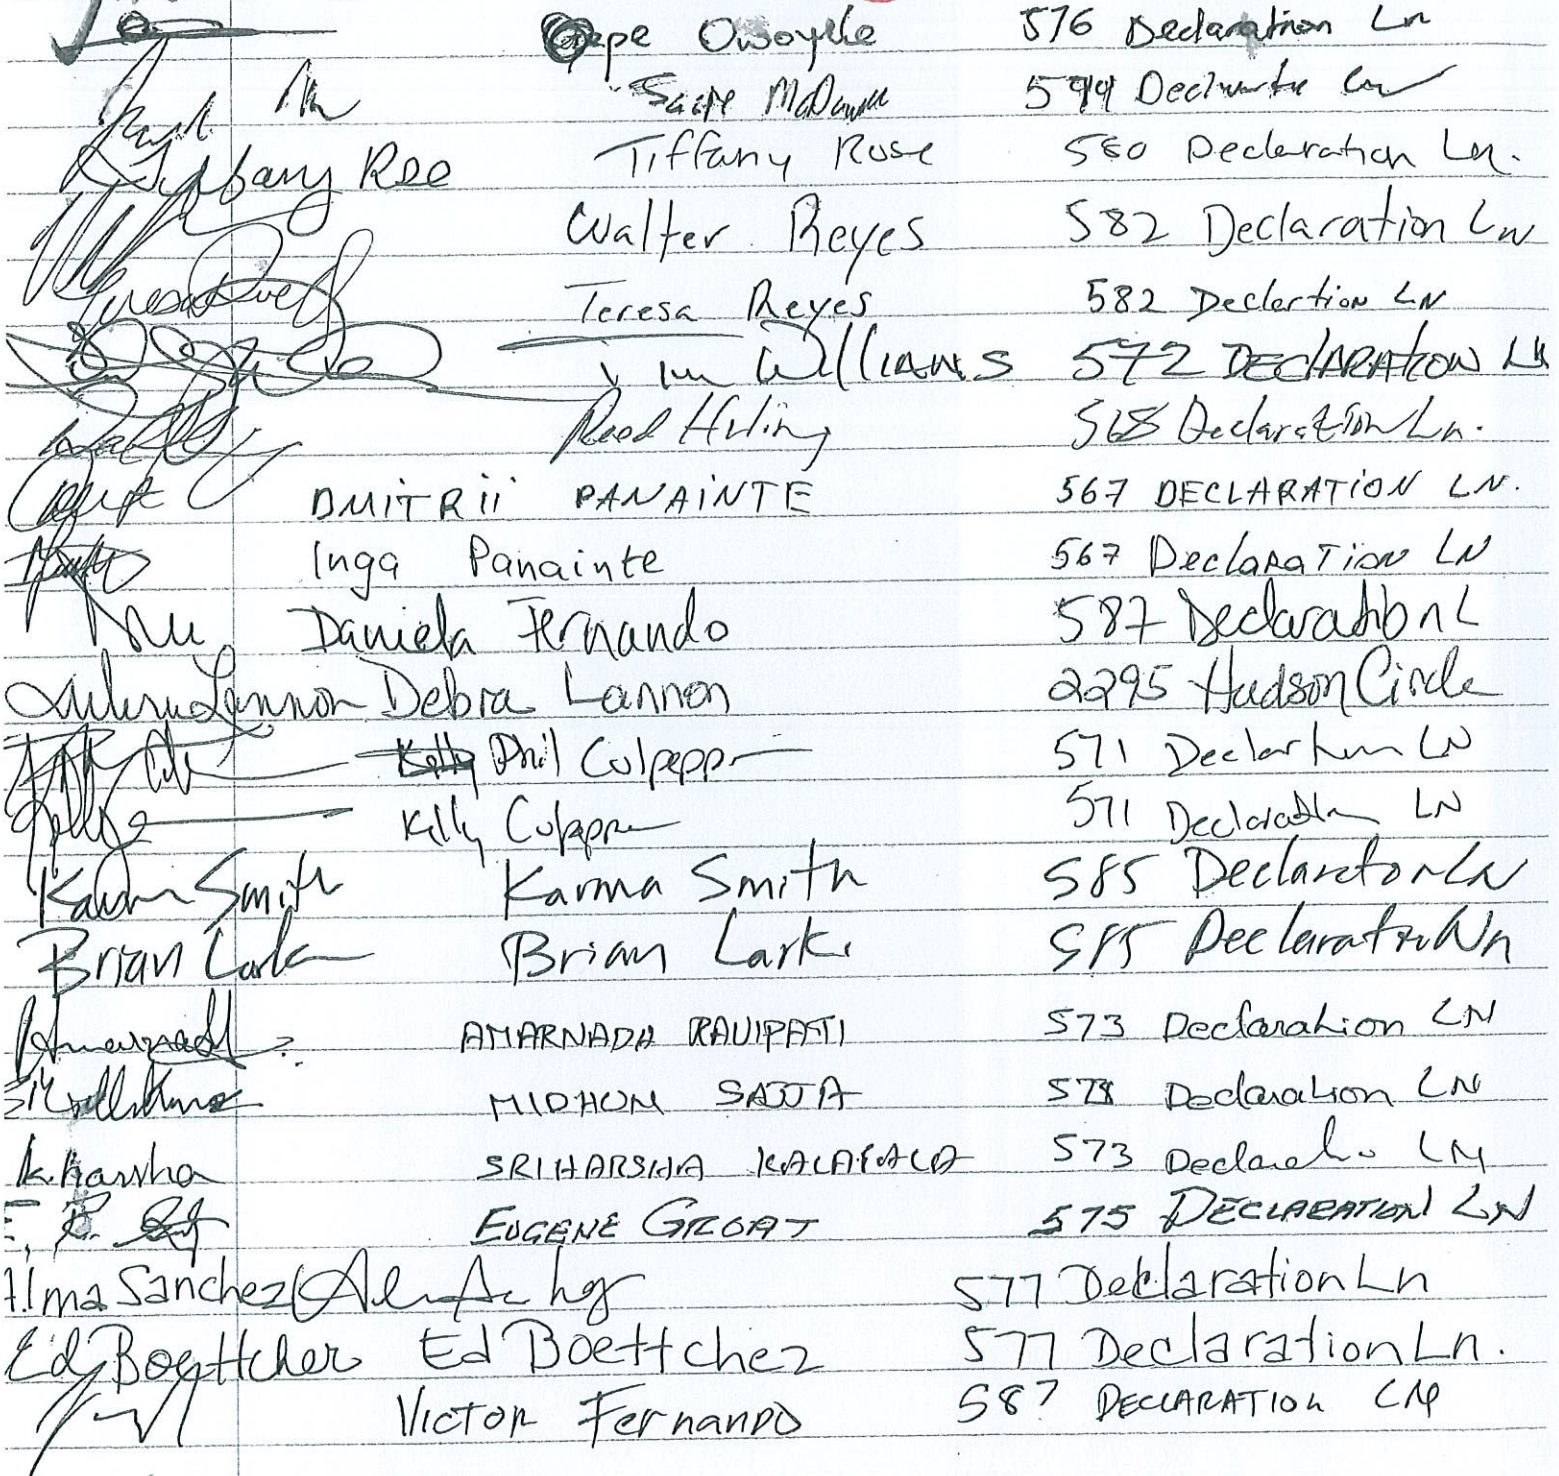 Owoyele 576 Declaration Ln
594
Tiffany Ree Tiffany Rose 580 Declaration Ln.
Walter Reyes 582 Declaration LN
Teresa Reyes 582 Declartion LN
Williams 572 DECLARATION LN
Reed Huling 568 Declaration Ln.
DMITRii PANAiNTE 567 DECLARATiON LN.
Inga Panainte 567 DeclaRaTion LN
Daniela Fernando 587 Declaration L
Lannon Debra Lannon 2295 Hudson Circle
Kelly Phil Culpepper 571 Declartion LN
Kelly Kelly Culpepper 571 Declaration LN
Karma Smith Karma Smith 585 Declaraton LN
Brian Lark Brian Lark 585 Declaration Ln
AMARNADH RAVIPATI 573 Declaration LN
MIDHUN SAJJA 573 Declaration LN
k.harsha SRIHARSHA 573 LN
EUGENE GROAT 575 DECLARATION LN
Alma Sanchez 577 Declaration Ln
Ed Boettcher Ed Boettcher 577 Declaration Ln.
VICTOR Fernando 587 DECLARATION LN